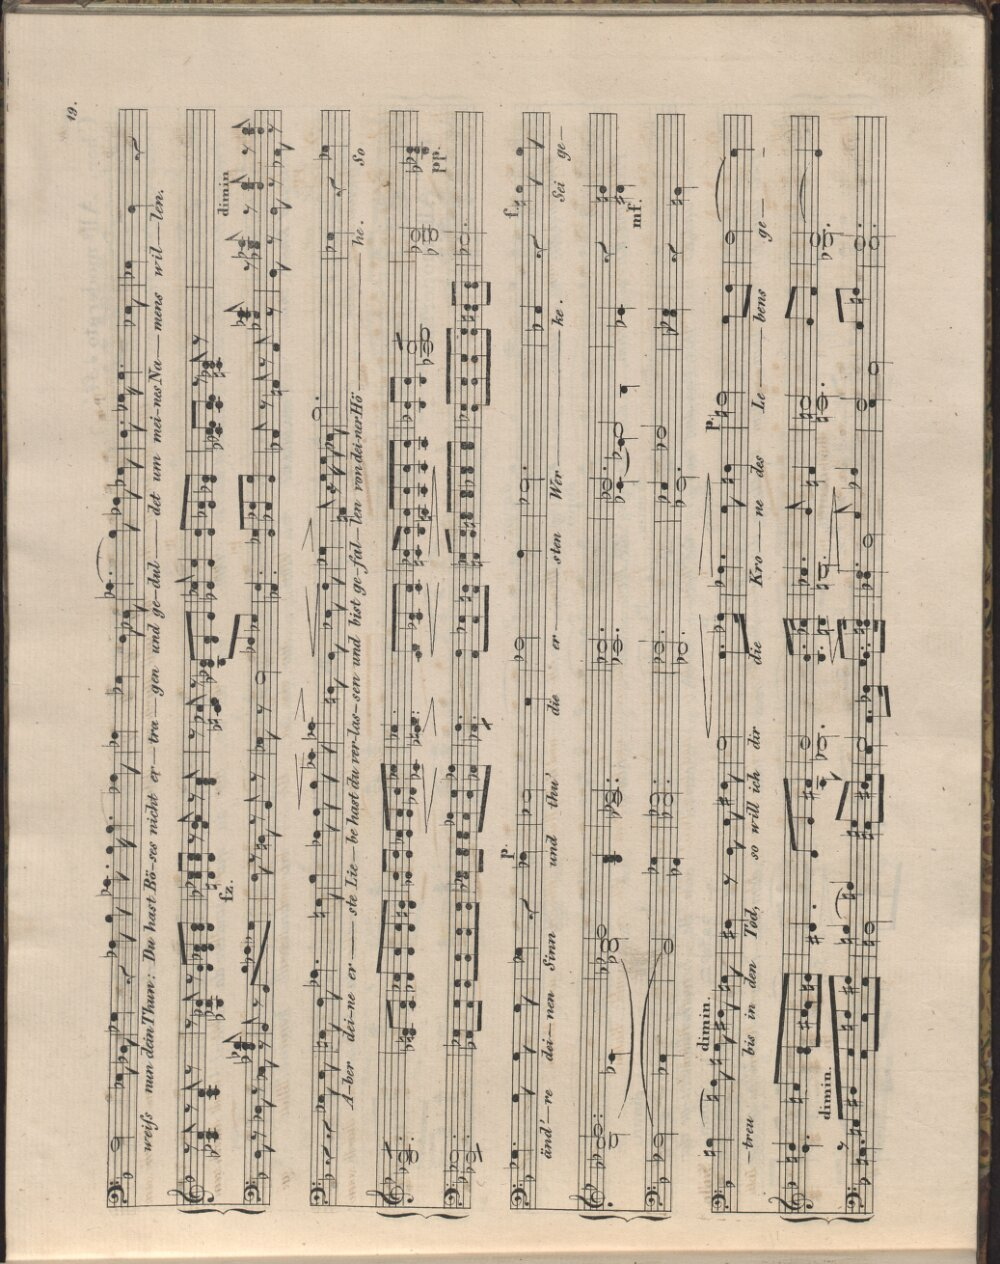 19.
dimin
weiſs nun dein Thun: Du hast Bö-ses nicht er-tra-gen und ge-dul-det um mei-nes Na-mens wil-len.
fz.
A-ber dei-ne er-ste Lie-be hast du ver-las-sen und bist ge-fal-len von dei-ner Hö-he. So
pp.
p. f.
änd'-re dei-nen Sinn und thu' die er-sten Wer-ke. Sei ge-
mf.
dimin. p.
-treu bis in den Tod, so will ich dir die Kro-ne des Le-bens ge-
dimin.